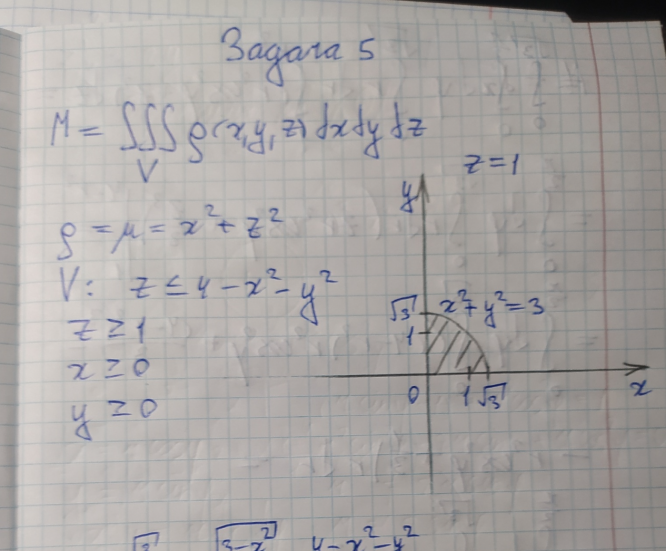 Задача 5
M = ∭ ρ(x,y,z) dxdydz
V
z = 1
y
ρ = μ = x² + z²
V: z ≤ 4 - x² - y²
z ≥ 1
x ≥ 0
y ≥ 0
√3 x² + y² = 3
1
0 1 √3 x
√3 √3-x² 4-x²-y²